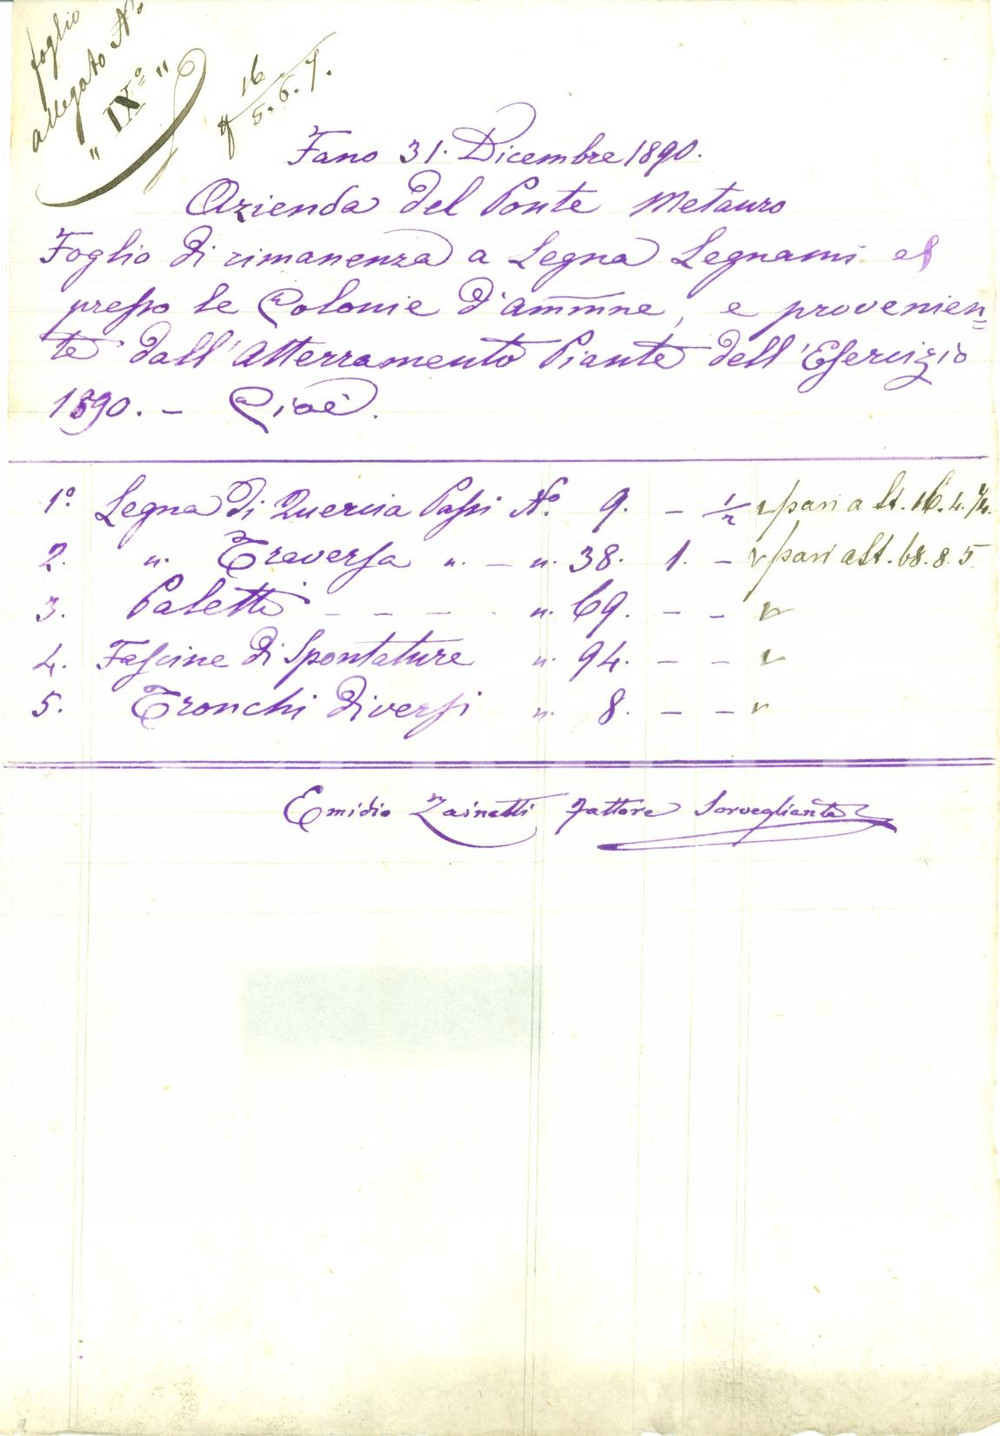 foglio
allegato N.º
" IXº "
16
5.6.9.
Fano 31. Dicembre 1890.
Azienda del Ponte Metauro
Foglio di rimanenza a Legna Legnami el
presso le Colonie d'ammne, e provenien=
te dall'Atterramento Piante dell'Esercizio
1890. - Cioè.
1º Legna di Quercia Passi Nº 9. - 1/2 pari a St. 16.4.
2. " Traversa " - " 38. 1. - pari a St. 68.8.5
3. Paletti - - - - " 69. - -
4. Fascine di Spontature " 94. - -
5. Tronchi diversi " 8. - -
Emidio Zainetti Fattore Sorvegliante